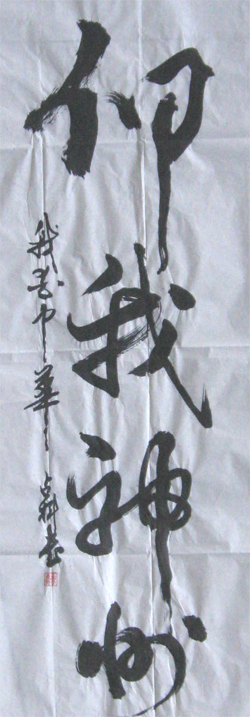 仰我神州
我爱中华